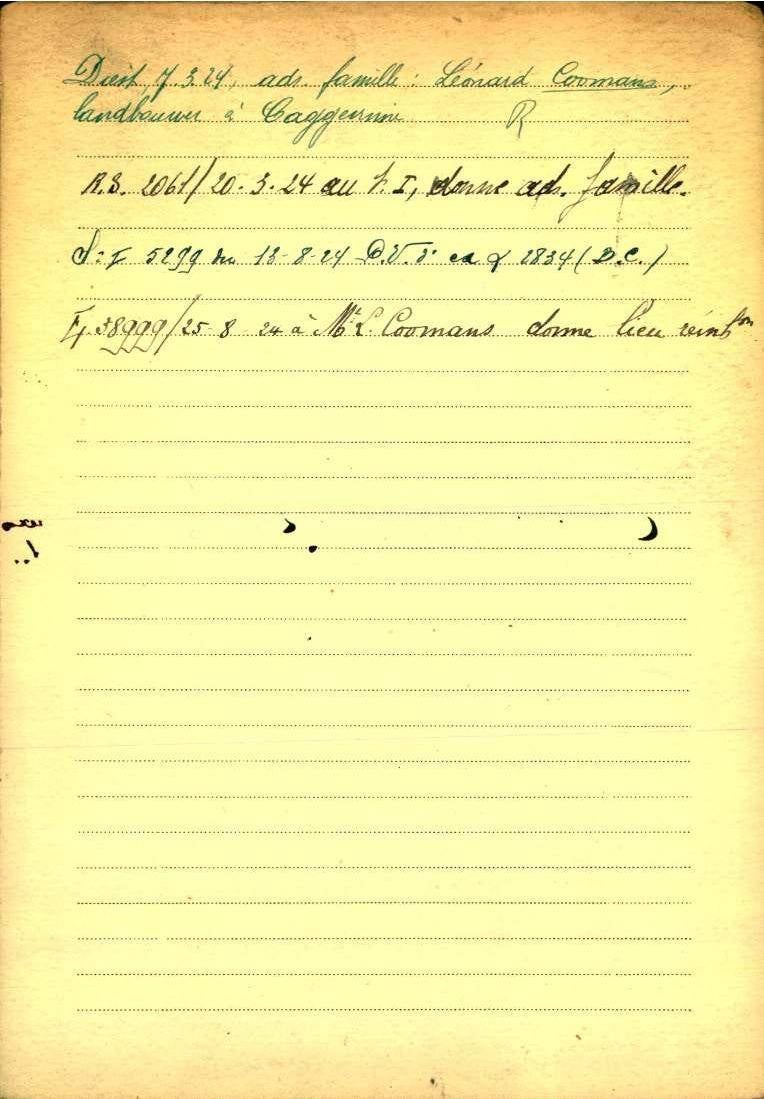 Diest, 7.3.24, adr. famille : Léonard Coomans,
landbouwer à Caggevinne
R
R.S. 2061/20-3-24 au S.I, donne ad. famille.
S:I 5299 du 13-8-24 D.V. 2834 (D.C.)
58999/25-8-24 à Mr L. Coomans donne lieu réinhon